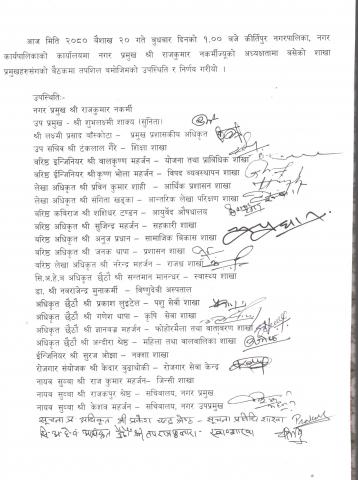 आज मिति २०८० बैशाख २० गते बुधबार दिनको १.०० बजे कीर्तिपुर नगरपालिका, नगर
कार्यपालिकाको कार्यालयमा नगर प्रमुख श्री राजकुमार नकर्मीज्यूको अध्यक्षतामा बसेको शाखा
प्रमुखहरुसंगको बैठकमा तपशिल बमोजिमको उपस्थिति र निर्णय गरीयो ।
उपस्थितिः-
नगर प्रमुख श्री राजकुमार नकर्मी
उप प्रमुख - श्री शुभलक्ष्मी शाक्य (सुनिता)
श्री लक्ष्मी प्रसाद बाँस्कोटा - प्रमुख प्रशासकीय अधिकृत
उप सचिब श्री टंकलाल गैरे - शिक्षा शाखा
वरिष्ठ ईन्जिनियर श्री बालकृष्ण महर्जन - योजना तथा प्राविधिक शाखा
वरिष्ठ ईन्जिनियर श्रीकृष्ण भोला महर्जन - विपद व्यवस्थापन शाखा
लेखा अधिकृत श्री प्रविन कुमार शाही - आर्थिक प्रशासन शाखा
लेखा अधिकृत श्री संगिता खड्का - आन्तरिक लेखा परिक्षण शाखा
वरिष्ठ कविराज श्री शशिधर टण्डन - आयुर्वेद औषधालय
वरिष्ठ अधिकृत श्री सुजिन्द्र महर्जन - सहकारी शाखा
वरिष्ठ अधिकृत श्री अनुज प्रधान - सामाजिक विकास शाखा
वरिष्ठ अधिकृत श्री जनक थापा - प्रशासन शाखा
वरिष्ठ लेखा अधिकृत श्री नरेन्द्र महर्जन - राजश्व शाखा
सि.अ.हे.ब अधिकृत छैठौं श्री सन्तमान मानन्धर - स्वास्थ्य शाखा
डा. श्री नवराजेन्द्र मुनाकर्मी - विष्णुदेवी अस्पताल
अधिकृत छैठौं श्री प्रकाश लुइटेल - पशु सेवी शाखा
अधिकृत छैठौं श्री गणेश थापा - कृषि सेवी शाखा
अधिकृत छैठौं श्री ज्ञानवज्र महर्जन - फोहोरमैला तथा वातावरण शाखा
अधिकृत छैठौं श्री अन्दीरा श्रेष्ठ - महिला तथा बालबालिका शाखा
ईन्जिनियर श्री सुरज ओझा - नक्शा शाखा
रोजगार संयोजक श्री केदार बुढाथोकी - रोजगार सेवा केन्द्र
नायव सुब्बा श्री राज कुमार महर्जन- जिन्सी शाखा
नायव सुब्बा श्री राजकपुर श्रेष्ठ - सचिवालय, नगर प्रमुख
नायव सुब्बा श्री केशव महर्जन - सचिवालय, नगर उपप्रमुख
सूचना प्र अधिकृत श्री प्रकेश चन्द्र श्रेष्ठ - सूचना प्रविधि शाखा